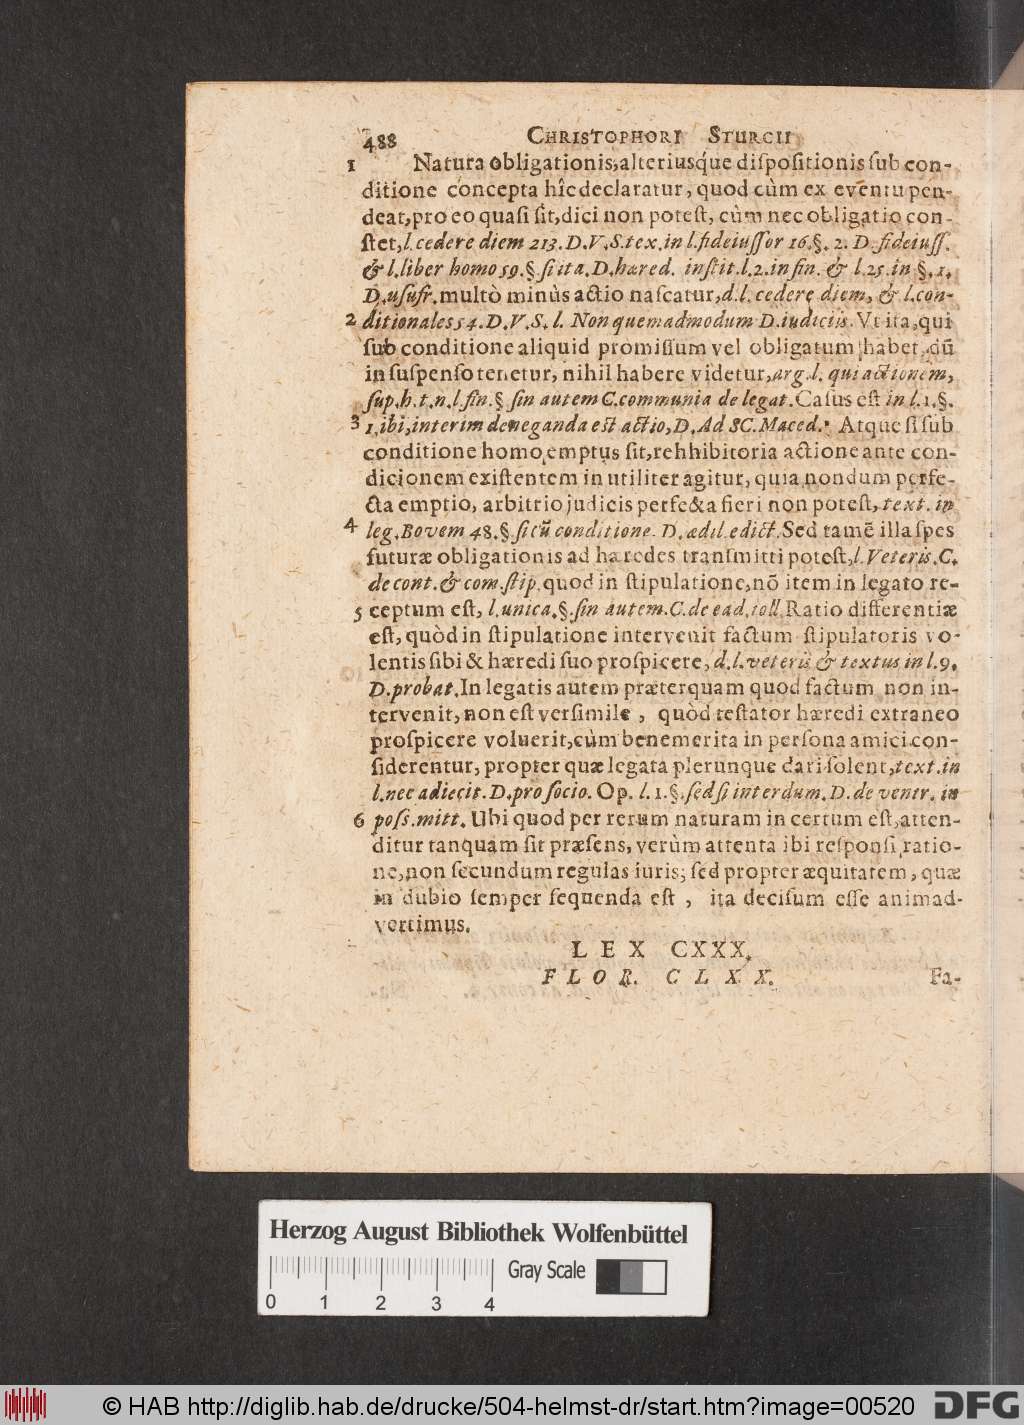 488 CHRISTOPHORI STURCII
1 Natura obligationis, alteriusq́ue dispositionis sub con-
ditione concepta hîc declaratur, quod cùm ex eventu pen-
deat, pro eo quasi sit, dici non potest, cùm nec obligatio con-
stet, l. cedere diem 213. D. V. S. tex. in l. fideiussor 16. §. 2. D. fideiuss.
& l. liber homo 59. §. si ita. D. hæred. instit. l. 2. in fin. & l. 25. in §. 1.
D. usufr. multò minùs actio nascatur, d. l. cedere diem, & l. con-
2 ditionales 54. D. V. S. l. Non quemadmodum D. iudiciis. Vt ita, qui
sub conditione aliquid promissum vel obligatum habet, dũ
in suspenso tenetur, nihil habere videtur, arg. l. qui actionem,
sup. h. t. n. l. fin. § sin autem C. communia de legat. Casus est in l. 1. §.
3 1. ibi, interim deneganda est actio, D. Ad SC. Maced. Atque si sub
conditione homo emptus sit, rehhibitoria actione ante con-
dicionem existentem inutiliter agitur, quia nondum perfe-
cta emptio, arbitrio judicis perfe&a fieri non potest, text. in
4 leg. Bovem 48. §. si cũ conditione. D. ædil. edict. Sed tamẽ illa spes
futuræ obligationis ad hæredes transmitti potest, l. Veteris. C.
de cont. & com. stip. quod in stipulatione, nõ item in legato re-
5 ceptum est, l. unica. §. sin autem. C. de cad. toll. Ratio differentiæ
est, quòd in stipulatione intervenit factum stipulatoris vo-
lentis sibi & hæredi suo prospicere, d. l. veteris & textus in l. 9.
D. probat. In legatis autem præterquam quod factum non in-
tervenit, non est versimile, quòd testator hæredi extraneo
prospicere voluerit, cùm benemerita in persona amici con-
siderentur, propter quæ legata plerunque dari solent, text. in
l. nec adiecit. D. pro socio. Op. l. 1. §. sed si interdum. D. de ventr. in
6 poss. mitt. Ubi quod per rerum naturam incertum est, atten-
ditur tanquam sit præsens, verùm attenta ibi responsi ratio-
ne, non secundum regulas iuris; sed propter æquitatem, quæ
in dubio semper sequenda est, ita decisum esse animad-
vertimus.
LEX CXXX.
FLOR. CLXX. Fa-
Herzog August Bibliothek Wolfenbüttel
Gray Scale
0 1 2 3 4
© HAB http://diglib.hab.de/drucke/504-helmst-dr/start.htm?image=00520 DFG